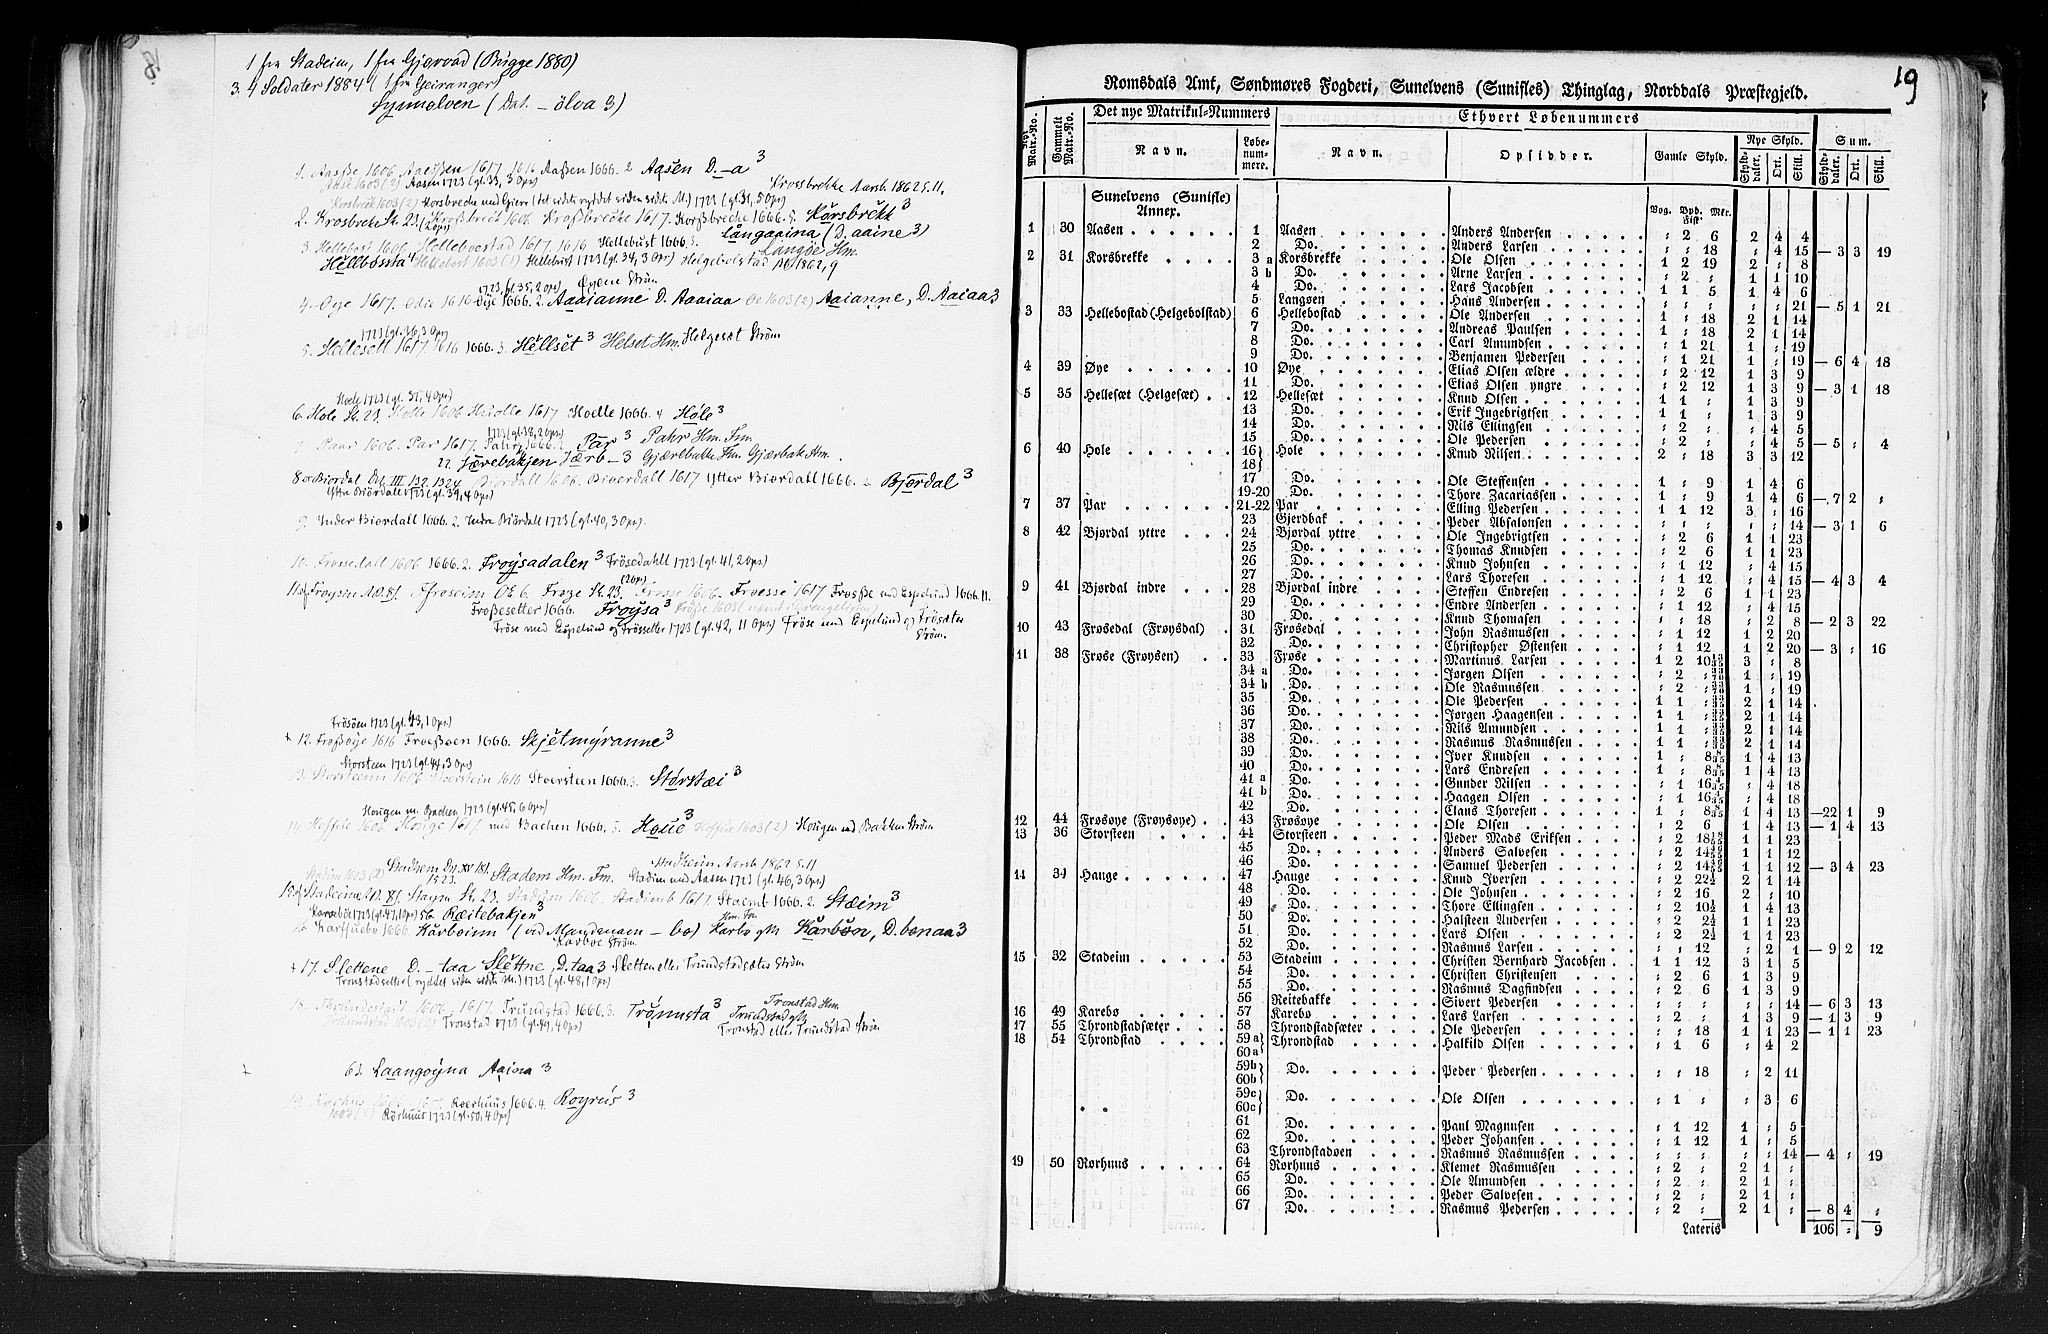 1 fra Stadeim, 1 fra Gjørvad (Bugge 1880)
3. 4 Soldater 1884 (1 fra Geiranger)
Synnølven (Dat. – ölva 3)
1. Aasße 1606 Aaeßen 1617 1616 Aaßen 1666. 2 Aasen D. –a 3
Aase 1603 (2) Aasen 1723 (gl. 33, 3 Opr)
Krossbrekke Aarsb. 1862 S. 11,
Korsbreck 1603 (2) Korsbrecke med Gjære (det sidste ryddet siden sidste M.) 1723 (gl. 31, 5 Opr)
2. Krosbrecke St. 23. (2 Opr) Kroßbreck 1606 Kroßbrecke 1617. Korßbrecke 1666. 5. Korsbrekk 3
Langaaina (D. aaine 3)
3. Hellebost 1606 Helleboestad 1617. 1616 Hellebust 1666. 3. Langøe Hm.
Hellbøssta 4 Hellebost 1603 (1) Hellebust 1723 (gl. 34, 3 Opr) Helgebolstad 1862, 9
1723 (gl. 35, 2 Opr) Øyene Strøm
4. Øye 1617. Odie 1616 Øye 1666. 2 Aaaianne D. Aaaiaa Oe 1603 (2) Aaianne, D. Aaiaa 3
1723 (gl. 36, 3 Opr)
5. Hellesett 1617. 1616 1666. 3. Hellset 3 Helset Hm. Helgesæt Strøm
Hoele 1723 (gl. 37, 4 Opr)
6. Hole St. 23. Holle 1606 Huolle 1617 Hoelle 1666. 4 Hole 3
1723 (gl. 38, 2 Opr)
7. Paar 1606. Par 1617. Pahr 1666. 2 Par 3 Pahr Hm. Fm
22. Jærebakjen Jærb – 3 Gjærebakke Fm. Gjærbak Hm.
8. Biordal DN. III 132. 1324 Biordall 1606. Biuerdall 1617 Ytter Biordall 1666. 2 Bjørdal 3
Yttre Biördall 1723 (gl. 39, 4 Opr)
9. Inder Biørdall 1666. 2. Indre Biördall 1723 (gl. 40, 3 Opr).
10. Frossedall 1606 1666. 2. Frøysadalen 3 Frösedahll 1723 (gl. 41, 2 Opr)
11. af Frøysin NO. 81. Ffroseim OE 6. Froze St. 23. (2 Opr) Frosse 1606. Froesse 1617 Frosße med Espelund 1666. 11.
Froßesetter 1666. Frøysa 3
Fröse med Espelund og Frössetter 1723 (gl. 42, 11 Opr) Fröse med Espelund og Frösæter
Strøm.
Frösöen 1723 (gl. 43, 1 Opr)
+ 12. Froßøye 1616 Froeßøen 1666. Skjetmyranne 3
Storsteen 1723 (gl. 44, 3 Opr)
13. Storstienn 1606 Stoerstein 1616 Stoersteen 1666. 3. Størstæi 3
Hougen m. Bachen 1723 (gl. 45, 6 Opr)
14. Hoffue 1606 Houge 1617 med Bachen 1666. 5. Houe 3 Hoffue 1603 (2) Hougen med Bakken Strøm
Stadim 1603 (2) Stadhem DN. XV 181. 1523. Stadem Hm. Fm. Stadheim Aarsb. 1862 S. 11
Stadim med Aasen 1723 (gl. 46, 3 Opr)
15. af Stadeime NO. 81. Staym St. 23. Stadum 1606. Stadimb 1617. Staemb 1666. 2. Stæim 3
Karseböe 1723 (gl. 47, 1 Opr) 56. Ræitebakjen 3
16. Karffuebø 1666. Kårbøinn (ved Manden – bø) Karbø gM Kårbøn, D. bønaa 3
Karboe Strøm.
+ 17. Slettene D. –taa Slettne, D. taa 3 Sletten eller Trundstadsæter Strøm
Tronstadsetter (ryddet siden sidste M.) 1723 (gl. 48, 1 Opr)
18. Throndestadt 1606. 1617. Trundstad 1666. 3. Trønnsta 3 Tronstad Hm.
Trundstad gM
Trundstad 1603 (2) Tronstad 1723 (gl. 49, 4 Opr) Tronstad eller Trundstad Strøm
63. Laangøyna Aaina 3
19. Rørhus 1606 Rørhuus 1666. 4. Røyrus 3
1603 (2) Rørhuus 1723 (gl. 50, 4 Opr)
19
Romsdals Amt, Søndmøres Fogderi, Sunelvens (Sunifles) Thinglag, Norddals Præstegjeld.
Nyt Matr.-No. Gammelt Matr.-No. Det nye Matrikul-Nummers Ethvert Løbenummers
Navn. Løbenummere. Navn. Opsidder. Gamle Skyld. Nye Skyld. Sum.
Skylddaler. Ort. Skill. Skylddaler. Ort. Skill.
Sunelvens (Sunifle) Annex. Vog. Bpd. Fisk. Mkr.
1 30 Aasen 1 Aasen Anders Andersen : 2 6 2 4 4
2 Do. Anders Larsen : : 18 : 4 15 — 3 3 19
2 31 Korsbrekke 3 a Korsbrekke Ole Olsen 1 2 19 2 : 8
3 b Do. Arne Larsen : 2 : 1 1 10
4 Do. Lars Jacobsen 1 1 5 1 4 6
5 Langøen Hans Andersen : : : : : 21 — 5 1 21
3 33 Hellebostad (Helgebolstad) 6 Hellebostad Ole Andersen : 1 18 2 1 14
7 Do. Andreas Paulsen : 1 18 2 1 14
8 Do. Carl Amundsen : 1 21 1 : 19
9 Do. Benjamen Pedersen : 1 21 1 : 19 — 6 4 18
4 39 Øye 10 Øye Elias Olsen ældre : 2 12 1 3 9
11 Do. Elias Olsen yngre : 2 12 1 3 9 — 3 1 18
5 35 Hellesæt (Helgesæt) 12 Hellesæt Knud Olsen 1 1 : 1 3 9
13 Do. Erik Ingebrigtsen 1 1 : 1 3 9
14 Do. Nils Ellingsen : 2 : : 4 5
15 Do. Ole Pedersen : 2 : : 4 5 — 5 : 4
6 40 Hole 16 18 Hole Knud Nilsen 2 : 18 3 3 12
17 Do. Ole Steffensen : 1 9 1 4 6
19-20 Do. Thore Zacariassen : 1 9 1 4 6 — 7 2 :
7 37 Par 21-22 Par Elling Pedersen 1 1 12 3 : 16
23 Gjerdbak Peder Absalonsen : : : : : 14 — 3 1 6
8 42 Bjørdal yttre 24 Bjørdal yttre Ole Ingebrigtsen : 2 6 1 1 23
25 Do. Thomas Knudsen : 2 6 1 1 23
26 Do. Knud Johnsen : 1 12 : 4 15
27 Do. Lars Thoresen : 1 12 : 4 15 — 4 3 4
9 41 Bjørdal indre 28 Bjørdal indre Steffen Endresen : 2 6 1 1 23
29 Do. Endre Andersen : 1 12 : 4 15
30 Do. Knud Thomasen : : 18 : 2 8 — 2 3 22
10 43 Frøsedal (Frøysdal) 31 Frøsedal John Rasmussen : 1 12 1 2 20
32 Do. Christopher Østensen : 1 12 1 2 20 — 3 : 16
11 38 Frøse (Frøysen) 33 Frøse Martinus Larsen 1 2 10 3 : 8
34 a Do. Jørgen Olsen : 2 : 1 : 19
34 b Do. Ole Rasmussen : 2 : 1 : 19
35 Do. Ole Pedersen 1 1 : 2 1 14
36 Do. Jørgen Haagensen 1 1 : 2 1 14
37 Do. Nils Amundsen 1 1 : 2 1 14
38 Do. Rasmus Rasmussen 1 1 : 2 1 14
39 Do. Iver Knudsen 1 : 8 1 4 13
40 Do. Lars Endresen 1 : 8 1 4 13
41 a Do. Gunder Nilsen : 1 16 : 4 18
41 b Do. Haagen Olsen : 1 16 : 4 18
42 Do. Claus Thoresen 1 : 8 1 4 13 —22 1 9
12 44 Frøsøye (Frøysøye) 43 Frøsøye Ole Olsen : 2 6 1 4 13 — 1 4 13
13 36 Storsteen 44 Storsteen Peder Mads Eriksen : 2 18 1 1 23
45 Do. Anders Salvesen : 2 14 1 1 12
46 Do. Samuel Pedersen : 2 14 1 1 12 — 3 4 23
14 34 Hauge 47 Hauge Knud Iversen : 2 22½ 2 1 14
48 Do. Ole Johnsen : 2 16 2 : 10
49 Do. Thore Ellingsen : 2 10½ 1 4 13
50 Do. Halsteen Andersen : 2 2¼ 1 1 23
51 Do. Lars Olsen : 2 2¼ 1 1 23
52 Do. Rasmus Larsen : : 12 : 2 1 — 9 2 12
15 32 Stadeim 53 Stadeim Christen Bernhard Jacobsen 1 1 12 3 1 5
54 Do. Christen Christensen : 2 6 1 3 9
55 Do. Rasmus Dagfindsen : 2 6 1 3 9
56 Reitebakke Sivert Pedersen : : : : : 14 — 6 3 13
16 49 Karebø 57 Karebø Lars Larsen : 2 : 1 3 9 — 1 3 9
17 55 Throndstadsæter 58 Throndstadsæter Ole Pedersen : : 18 1 1 23 — 1 1 23
18 54 Throndstad 59a 60a Throndstad Halkild Olsen : 1 6 : 4 2
59b 60b Do. Peder Pedersen : : 18 : 2 11
59c 60c Do. Ole Olsen : 1 : : 3 6
61 Do. Paul Magnusen : 1 12 1 : 5
62 Do. Peder Johansen : 1 12 1 : 5
63 Throndstadøen Rasmus Rasmussen : : : : : 14 — 4 : 19
19 50 Rørhuus 64 Rørhuus Klemet Rasmussen : 2 : 2 1 :
65 Do. Ole Amundsen : 2 : 2 1 :
66 Do. Peder Salvesen : 2 : 2 1 :
67 Do. Rasmus Pedersen : 2 : 2 1 : — 8 4 :
Lateris 106 : 9